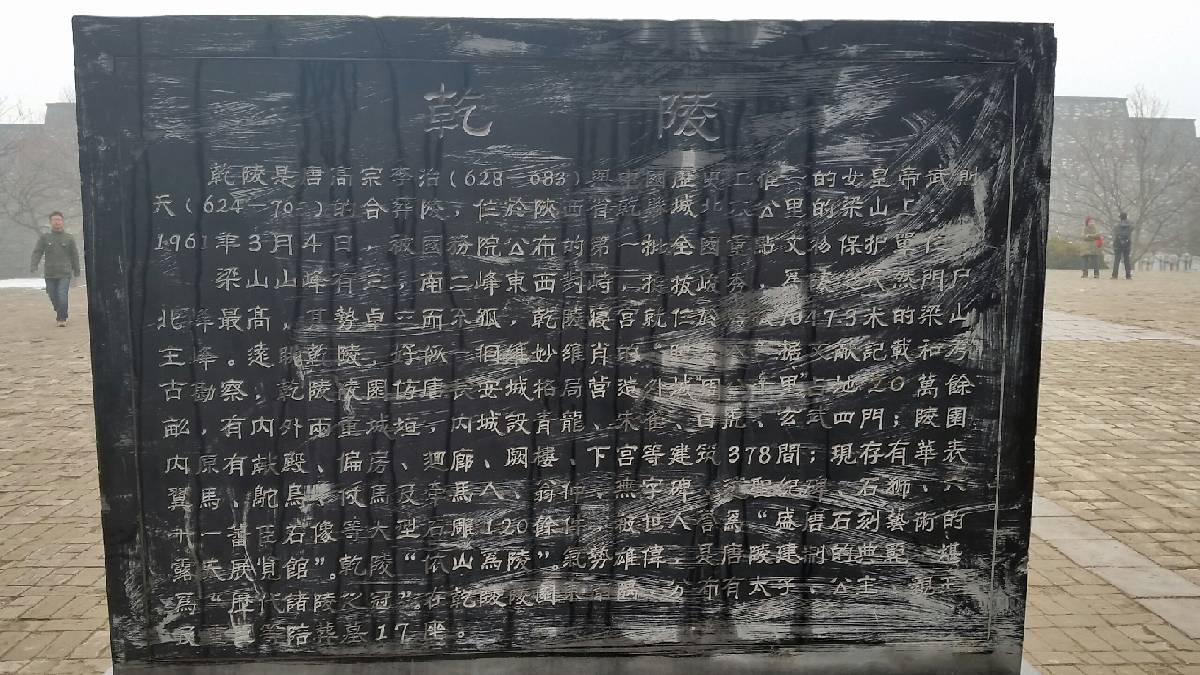 乾陵
乾陵是唐高宗李治(628—683)與中國歷史上唯一的女皇帝武則
天(624—70)的合葬陵,位於陝西省乾縣城北 公里的梁山上
1961年3月4日,被國務院公布的第一批全國重點文物保护單位
梁山山峰有三,南二峰東西對峙, 拔 秀,爲 然門戶
北峰最高,其勢卓立而不孤,乾陵寢宮就位於 1047.3米的梁山
主峰。遠眺乾陵,好似一 維妙維肖的 據文獻記載和考
古勘察,乾陵陵園仿唐長安城格局營造,外城 周 里 占地20萬餘
畝,有内外兩重城垣,内城設青龍、朱雀、白虎、玄武四門;陵園
内原有献殿、偏房、迴廊、闕樓、下宮等建筑378間;現存有華表
翼馬、鴕鳥、仗馬及牽馬人、翁仲、無字碑、述聖紀碑、石獅、六
十一蕃臣石像等大型石雕120餘件,被世人誉爲“盛唐石刻藝術的
露天展覧館”。乾陵“依山爲陵”。氣勢雄偉,是唐陵建制的典範,堪
爲“歷代諸陵之冠”。在乾陵陵園東 分布有太子、公主、親王
等陪葬墓17座。